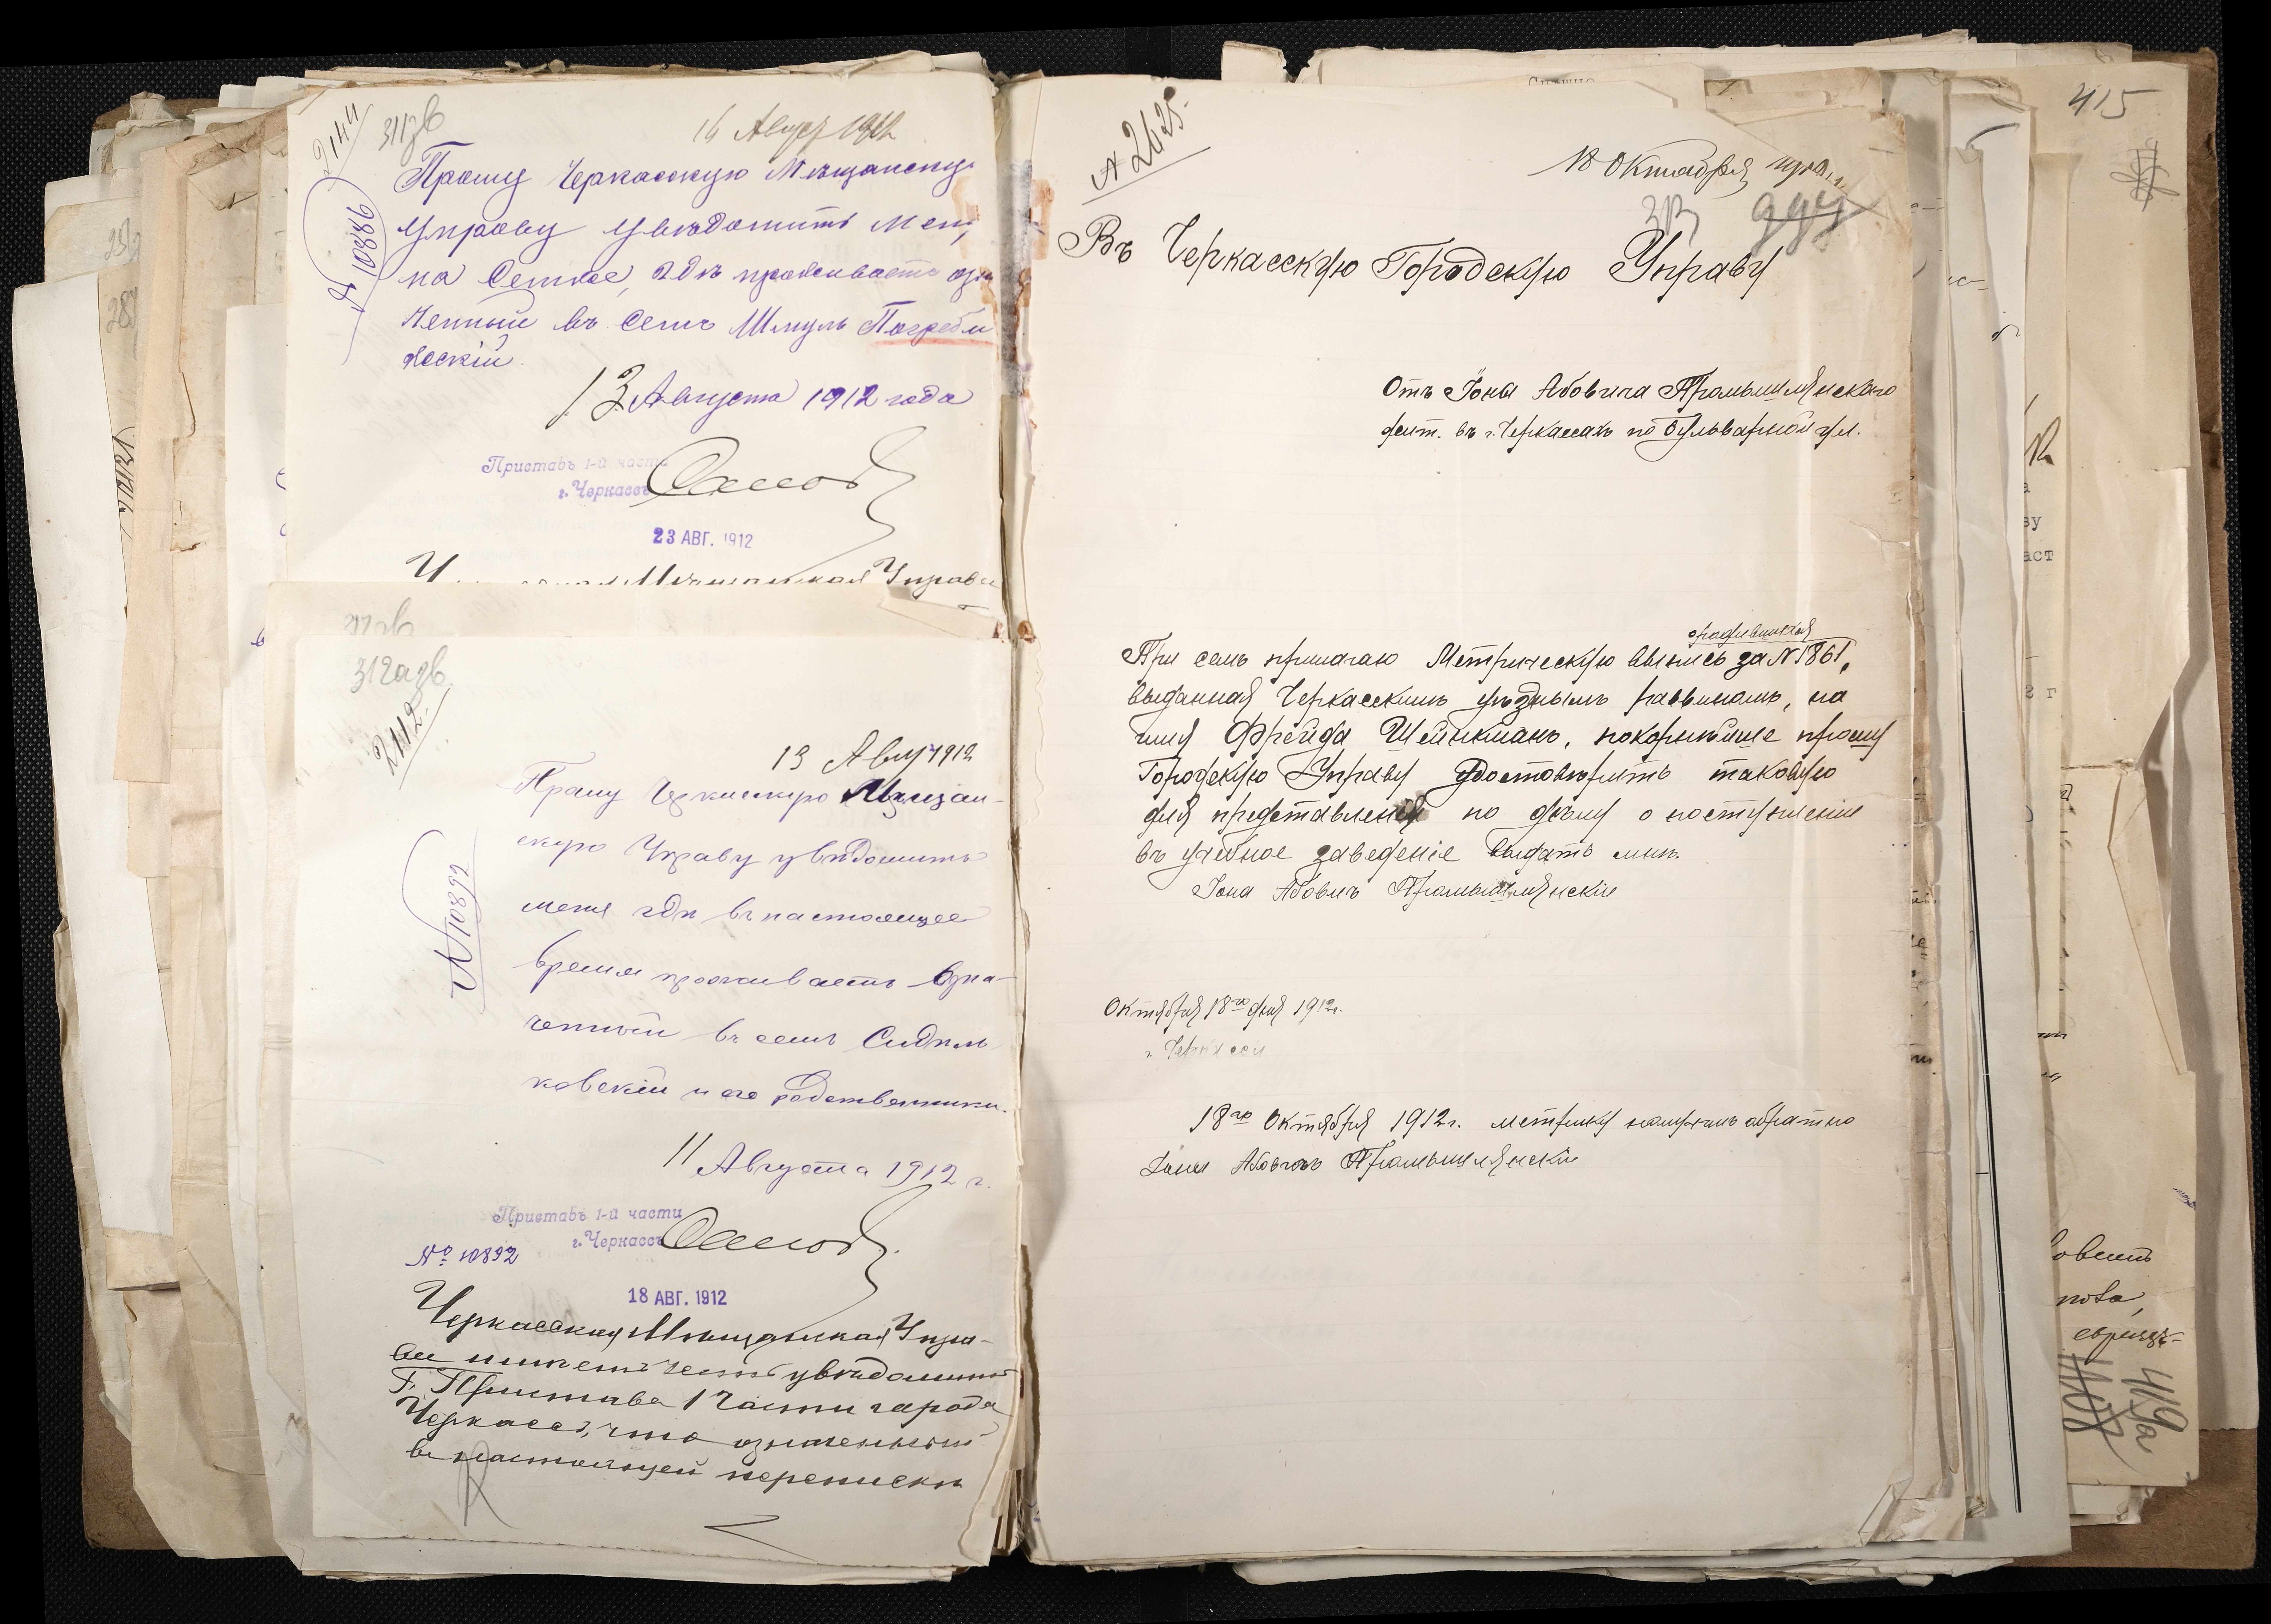 2144
311зв
16 Август 1912
№ 10886
Прошу Черкасскую Мѣщанску
Управу увѣдомить меня,
на Семъ же, гдѣ проживаетъ озна
ченный въ семъ Шмуль Погреби
скій.
13 Августа 1912 года
Приставъ 1-й части
г. Черкассъ
23 АВГ. 1912
Мѣщанская Управа
312азв
2112.
13 Авгу 1912
№ 10892
Прошу Черкасскую Мѣщан-
скую Управу увѣдомить
меня гдѣ въ настоящее
время проживаетъ озна-
ченный въ семъ Сидѣль
ковскій и его родственники.
11 Августа 1912 г.
Приставъ 1-й части
г. Черкассъ
№ 10892
18 АВГ. 1912
Черкасская Мѣщанская Упра-
ва имѣетъ честь увѣдомить
Г. Пристава 1 части города
Черкассъ, что означенный
въ настоящей перепискѣ
№ 2625
18 Октября 1912 г.
313
Въ Черкасскую Городскую Управу
Отъ Іоны Абовича Промышлянскаго
жит. въ г. Черкассахъ по Бульварной ул.
При семъ прилагаю Метрическую выпись за № 1861,
выданная Черкасскимъ уѣзднымъ раввиномъ, на
имя Фрейда Шейнкманъ, покорнѣйше прошу
Городскую Управу удостовѣрить таковую
для представленія по дѣлу о поступленіи
въ учебное заведеніе выдать мнѣ.
Іона Абовичъ Промышлянскій
Октября 18го дня 1912г.
г. Черкассы
18го Октября 1912г. метрику получилъ обратно
Іона Абовичъ Промышлянскій
415
419а